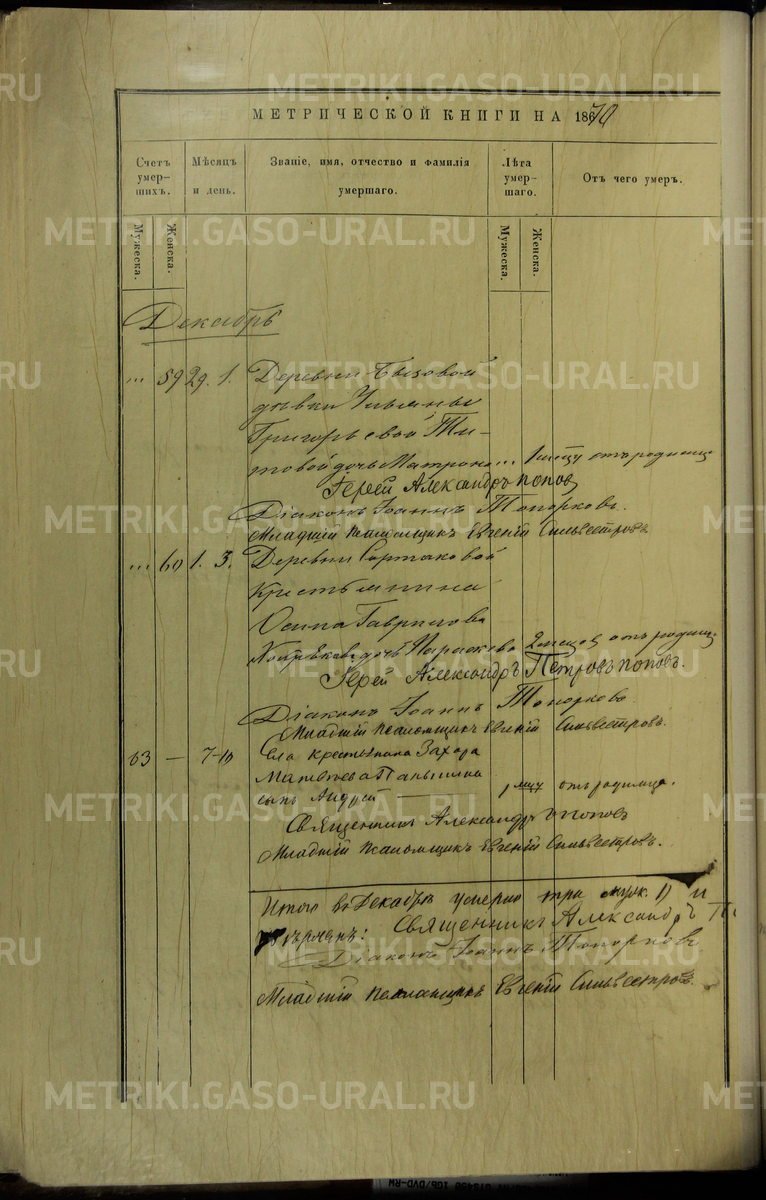 МЕТРИЧЕСКОЙ КНИГИ НА 1870
Счетъ умер-шихъ.
Мѣсяцъ и день.
Званіе, имя, отчество и фамилія умершаго.
Лѣта умер-шаго.
Отъ чего умеръ.
Мужеска.
Женска.
Мужеска.
Женска.
Декабрь
... 59 29. 1. Деревни Бызовой
дѣвки Ульяны
Григорьевой Ти-
товой дочь Матрона ... 1 мсцу отъ родимца
Іерей Александръ Попов
Діаконъ Іоаннъ Топорковъ.
Младшій Псаломщикъ Евгеній Сильвестровъ
... 60 1. 3. Деревни
Крестьянина
Осипа Гаврилова
дочь Параскева 2 мсцев отъ родимца
Іерей Александръ Петровъ Поповъ.
Діаконъ Іоаннъ Топорковъ
Младшій Псаломщикъ Евгеній Сильвестровъ.
63 — 7-10 Села крестьянина Захара
Матвѣева Паньшина
сынъ Андрей — 1 мцу отъ родимца.
Священникъ Александръ Поповъ
Младшій Псаломщикъ Евгеній Сильвестровъ.
Итого въ Декабрѣ умерло три муж. 1) и
Священникъ Александръ
Діаконъ Іоаннъ Топорковъ
Младшій Псаломщикъ Евгеній Сильвестровъ.
METRIKI.GASO-URAL.RU